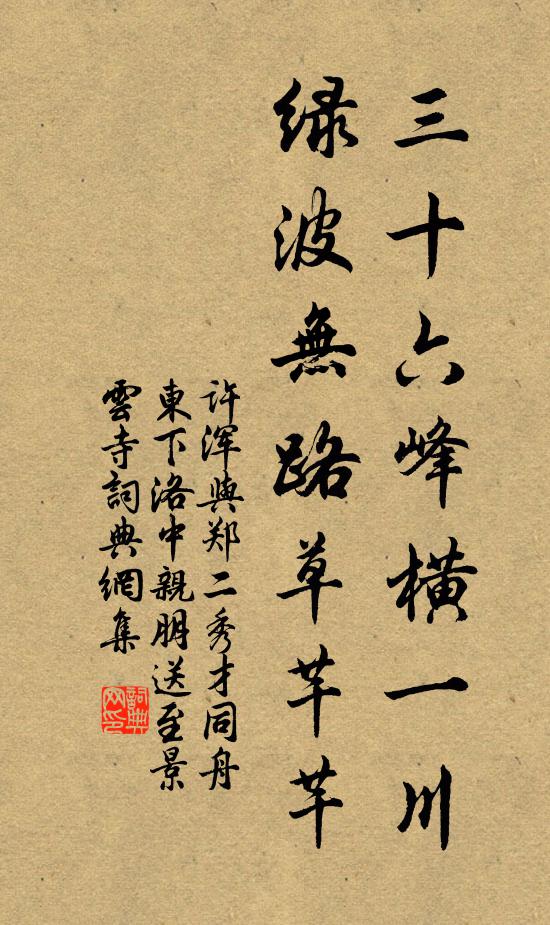 三十六峰橫一川
綠波無路草芊芊
许浑與郑二秀才同舟
東下洛中親朋送至景
雲寺詞典網集
詞典网印